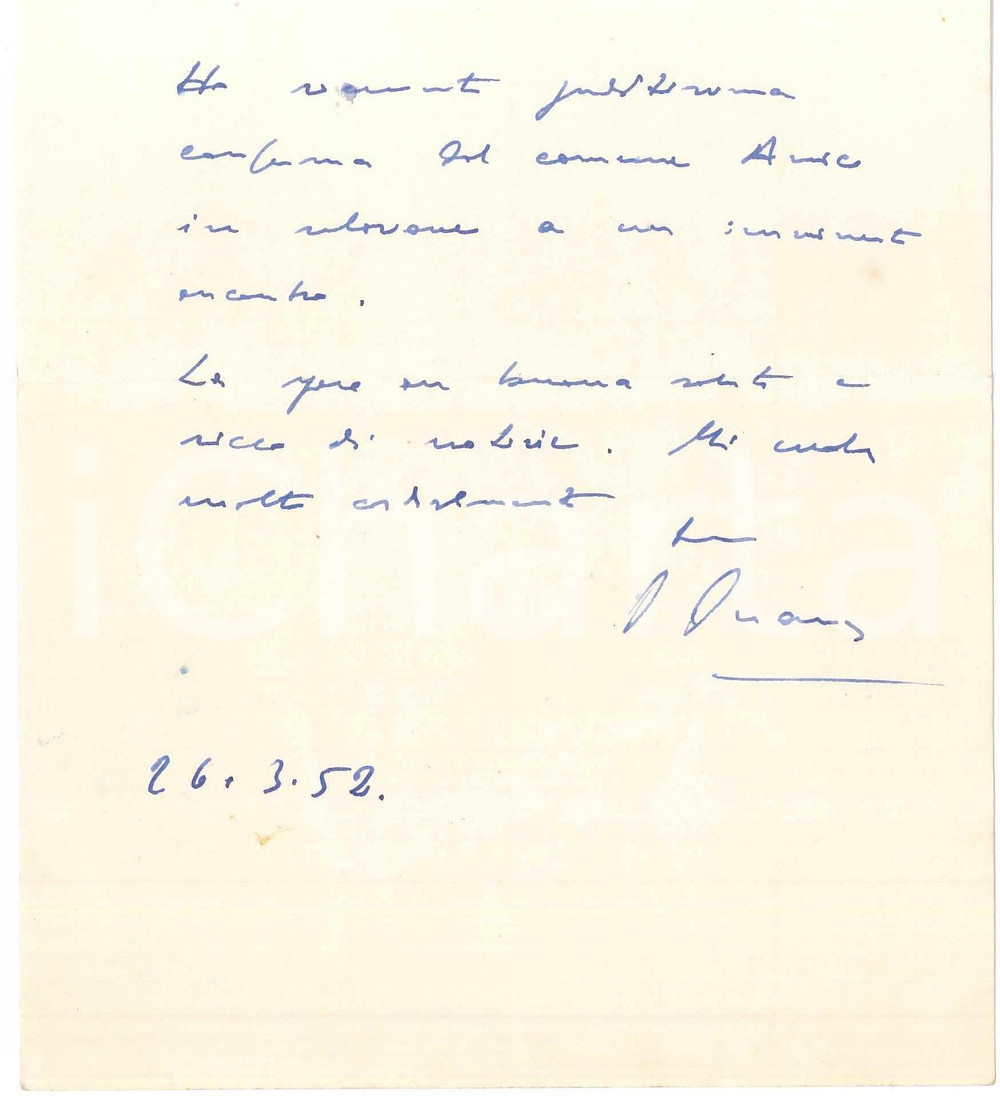 Ho
conferma del comune Amico
in relazione a un imminente
incontro.
La spero in buona salute e
ricco di notizie. Mi creda
molto cordialmente
suo
26.3.52.
iCharta